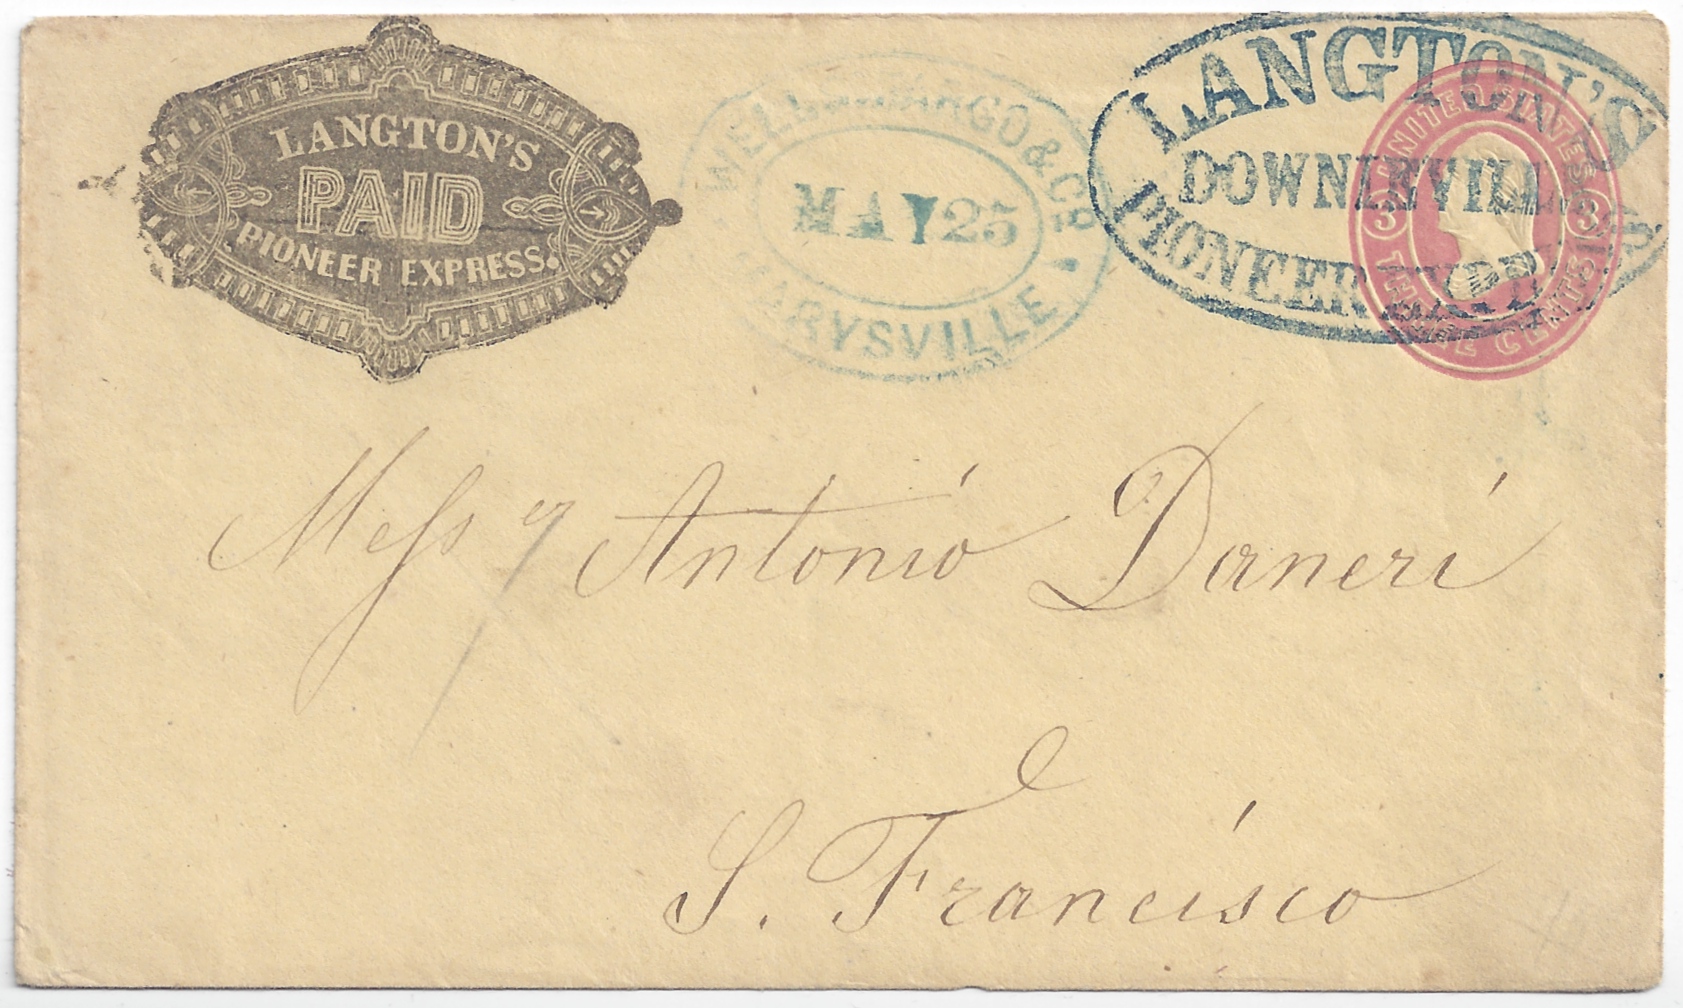 LANGTON'S
PAID
PIONEER EXPRESS.
WELLS FARGO & Co.
MAY 25
MARYSVILLE
LANGTON'S
DOWNIEVILLE
PIONEER EXPRESS
UNITED STATES
3 3
THREE CENTS
Antonio Daneri
S. Francisco